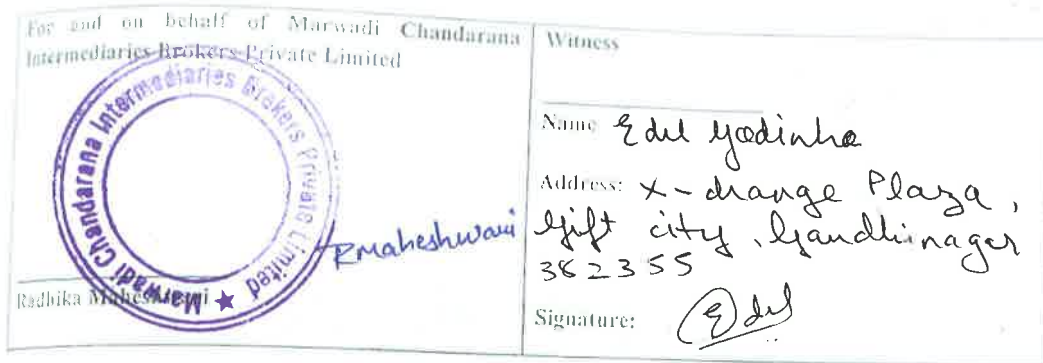 For and on behalf of Marwadi Chandarana
Intermediaries Brokers Private Limited
Marwadi Chandarana Intermediaries Brokers Private Limited ★
RMaheshwari
Radhika Maheshwari
Witness
Name Edel Godinho
Address: X-change Plaza,
Gift city, Gandhinagar
382355
Signature: Edel